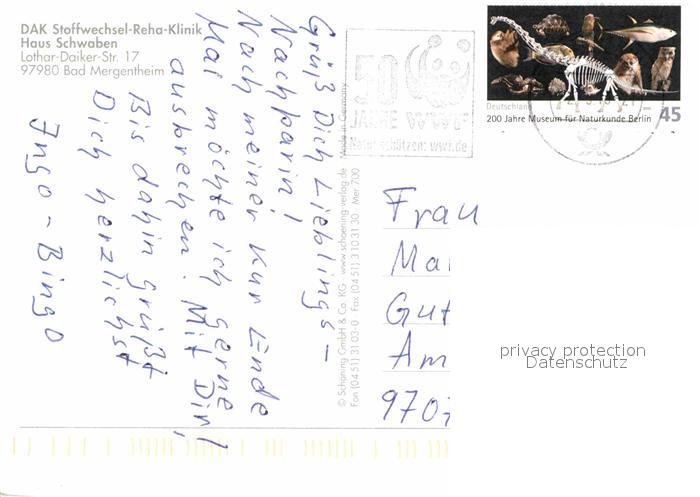 DAK Stoffwechsel-Reha-Klinik
Haus Schwaben
Lothar-Daiker-Str. 17
97980 Bad Mergentheim
Grüß Dich Lieblings-
Nachbarin!
Nach meiner Kur Ende
Mai möchte ich gerne
ausbrechen. Mit Dir!
Bis dahin grüßt
Dich herzlichst
Ingo - Bingo
© Schöning GmbH & Co. KG · www.schoening-verlag.de Made in Germany
Fon (04 51) 3 10 3-0 Fax (04 51) 3 10 31 30 Mer 700
50
JAHRE WWF
Natur schützen: wwf.de
Deutschland
200 Jahre Museum für Naturkunde Berlin
45
Frau
Mai
Gut
Am
970
privacy protection
Datenschutz